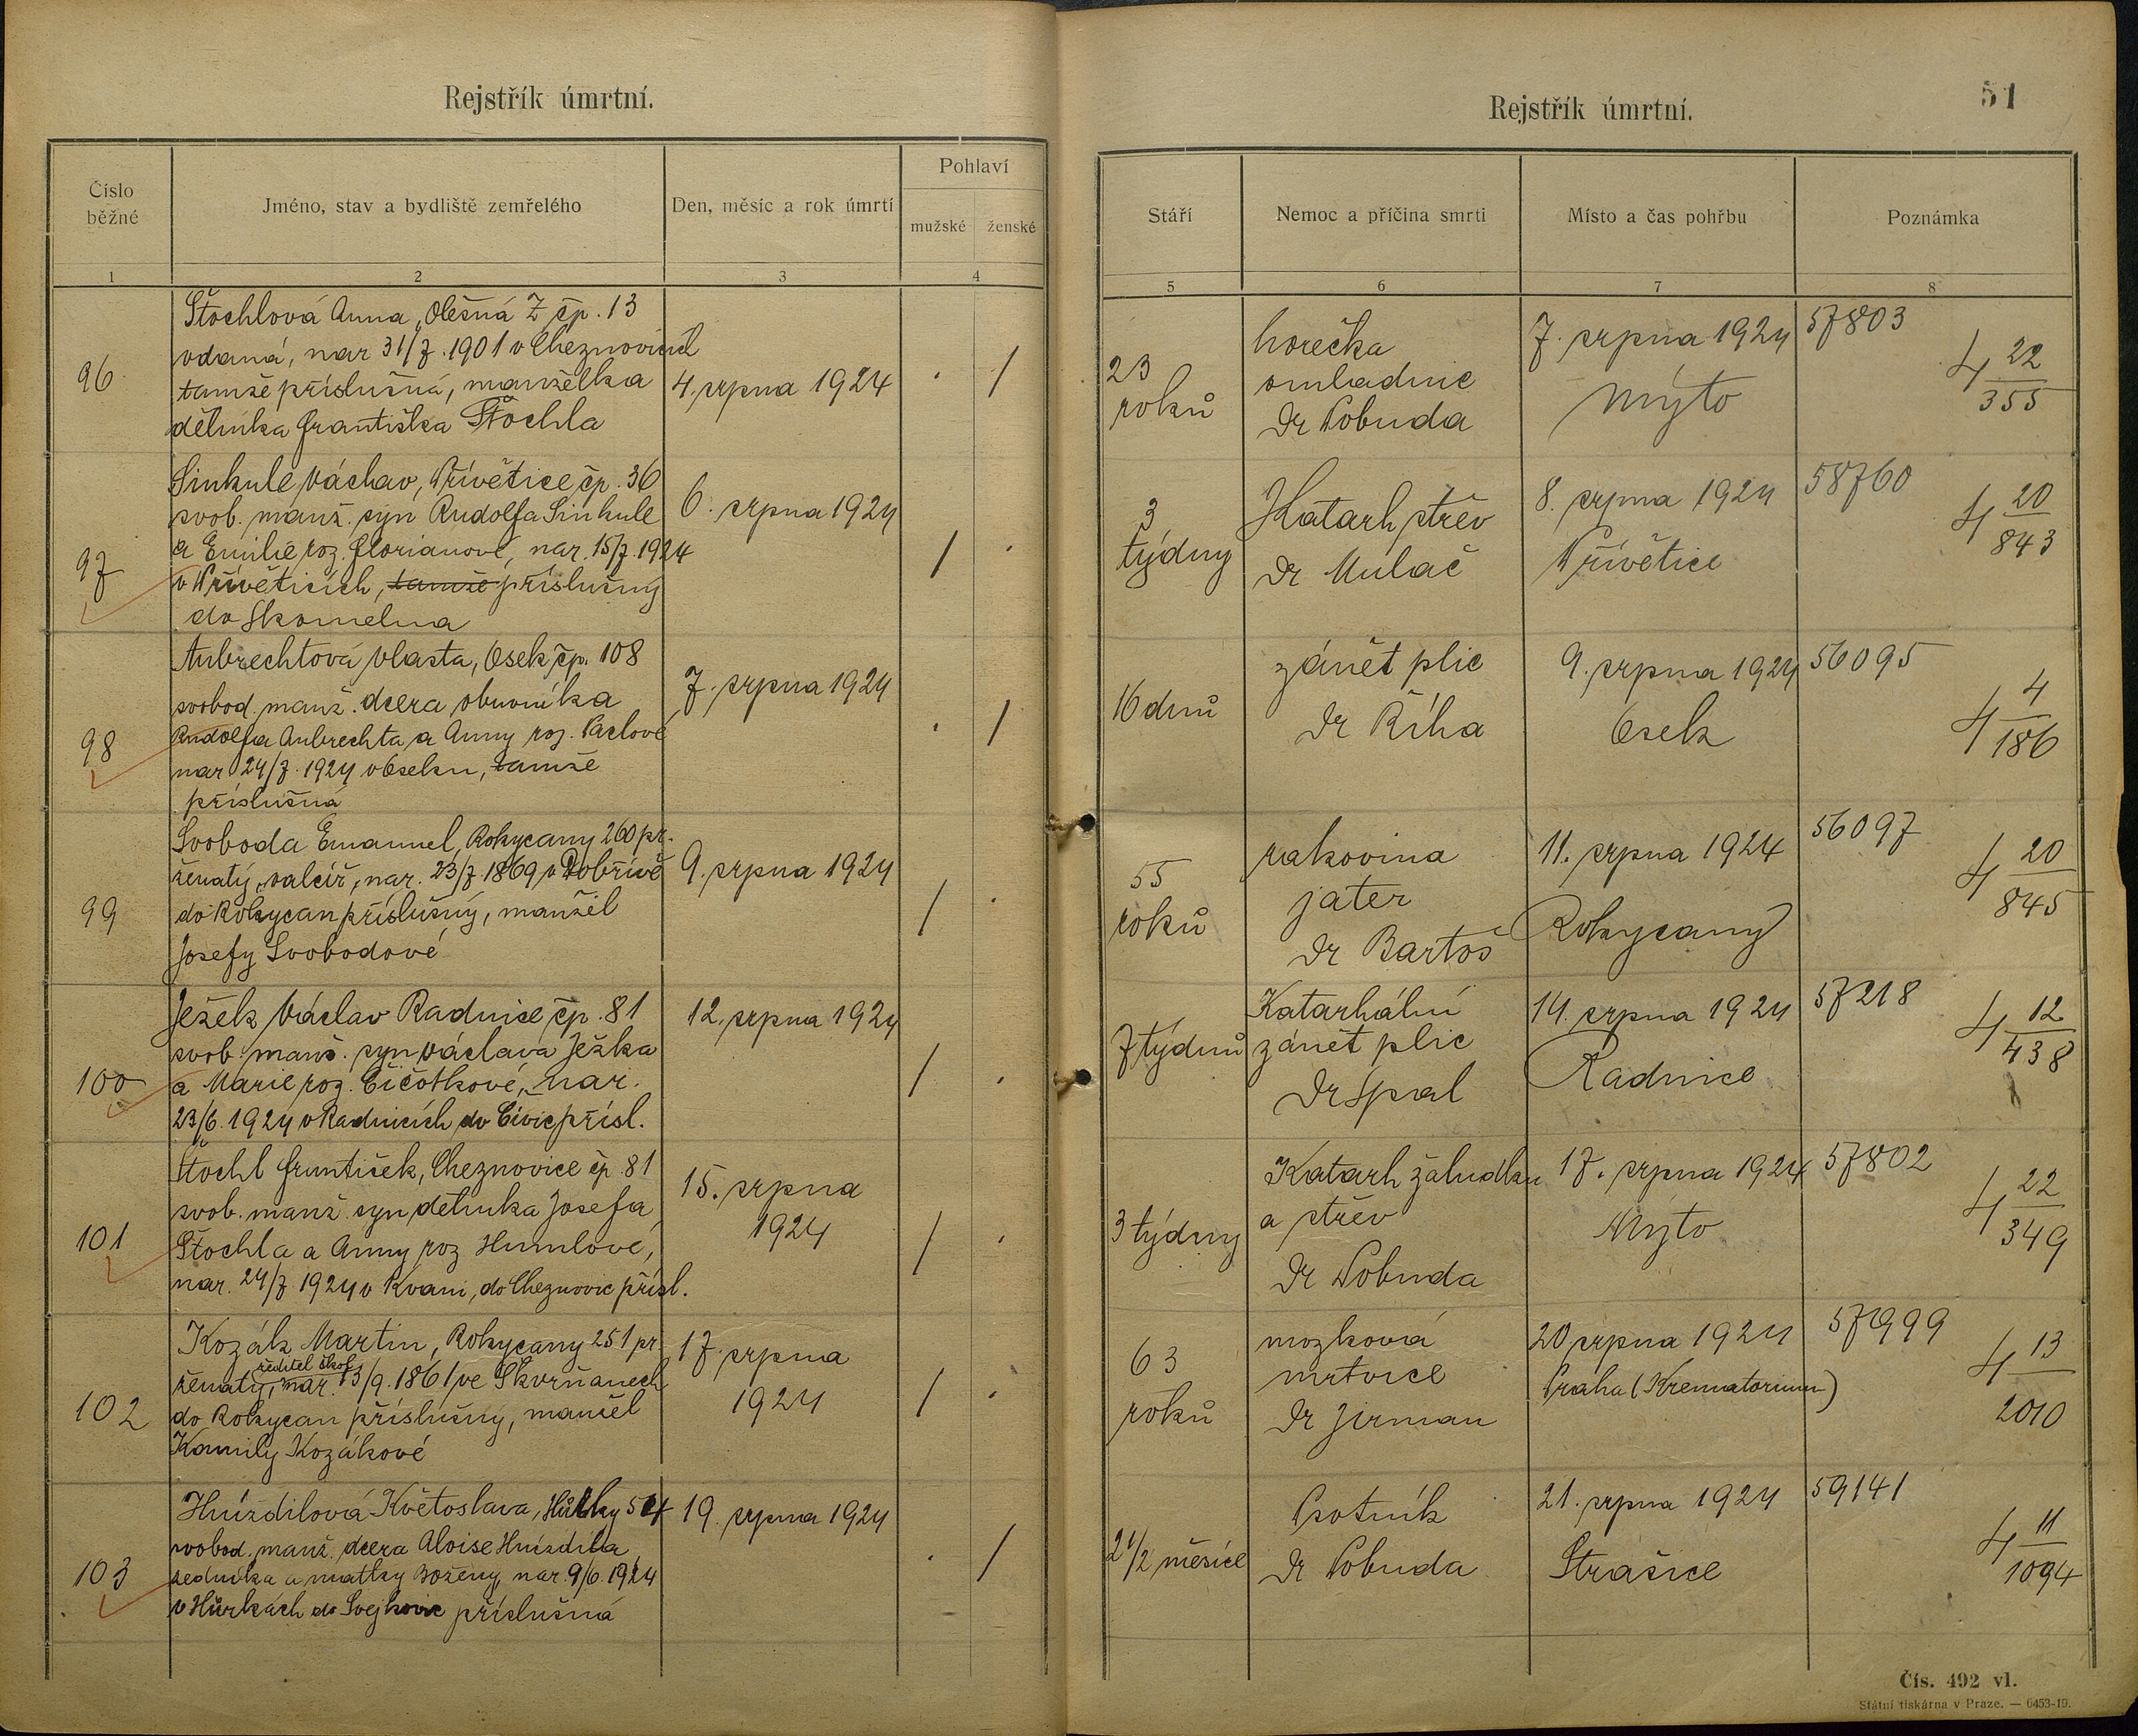 Rejstřík úmrtní.
Číslo běžné
Jméno, stav a bydliště zemřelého
Den, měsíc a rok úmrtí
Pohlaví
mužské
ženské
1
2
3
4
96
Štochlová Anna, Olešná Z čp. 13
vdaná, nar 31/7. 1901 v Cheznovicích
tamže příslušná, manželka
dělníka Františka Štochla
4. srpna 1924
. /
97
Sinkule Václav, Přívětice čp. 36
svob. manž. syn Rudolfa Sinkule
a Emilie roz. Florianové, nar. 15/7. 1924
v Příveticích, tamže příslušný
do Skomelna
6. srpna 1924
/ .
98
Aubrechtová Vlasta, Osek čp. 108
svobod. manž. dcera obuvníka
Rudolfa Aubrechta a Anny roz. Paclové
nar 24/7. 1924 v Oseku, tamže
příslušná
7. srpna 1924
. /
99
Svoboda Emanuel, Rokycany 260 pr.
ženatý, valcíř, nar. 23/7. 1869 v Dobřívě
do Rokycan příslušný, manžel
Josefy Svobodové
9. srpna 1924
/ .
100
Ježek Václav Radnice čp. 81
svob. manž. syn Václava Ježka
a Marie roz. Čičotkové, nar.
23/6. 1924 v Radnicích do Čivic přísl.
12. srpna 1924
/ .
101
Štochl František, Cheznovice čp 81
svob. manž. syn dělníka Josefa
Štochla a Anny roz Humlové,
nar. 24/7 1924 v Kvani, do Cheznovic přísl.
15. srpna
1924
/ .
102
Kozák Martin, Rokycany 251 pr.
ředitel škol
ženatý, nar. 13/9. 1861 ve Skvrňanech
do Rokycan příslušný, manžel
Kamily Kozákové
17. srpna
1924
/ .
103
Hnízdilová Květoslava, Hůrky 54
svobod. manž. dcera Aloise Hnízdila
zedníka a matky Boženy, nar. 9/6. 1924
v Hůrkách do Svejkovic příslušná
19. srpna 1924
. /
Rejstřík úmrtní.
51
Stáří
Nemoc a příčina smrti
Místo a čas pohřbu
Poznámka
5
6
7
8
23
roků
horečka
omladnic
Dr Pobuda
7. srpna 1924
Mýto
57803
4 22/355
3
týdny
Katarh střev
Dr Mulač
8. srpna 1924
Přívětice
58760
4 20/843
16 dnů
zánět plic
Dr Říha
9. srpna 1924
Osek
56095
4 4/186
55
roků
rakovina
jater
Dr Bartoš
11. srpna 1924
Rokycany
56097
4 20/845
7 týdnů
Katarhální
zánět plic
Dr Špal
14. srpna 1924
Radnice
57218
4 12/438
3 týdny
Katarh žaludku
a střev
Dr Pobuda
17. srpna 1924
Mýto
57802
4 22/349
63
roků
mozková
mrtvice
Dr Jirman
20 srpna 1924
Praha (Krematorium)
57999
4 13/2010
2 1/2 měsíce
Psotník
Dr Pobuda
21. srpna 1924
Strašice
59141
4 11/1094
Čís. 492 vl.
Státní tiskárna v Praze. — 6453-19.